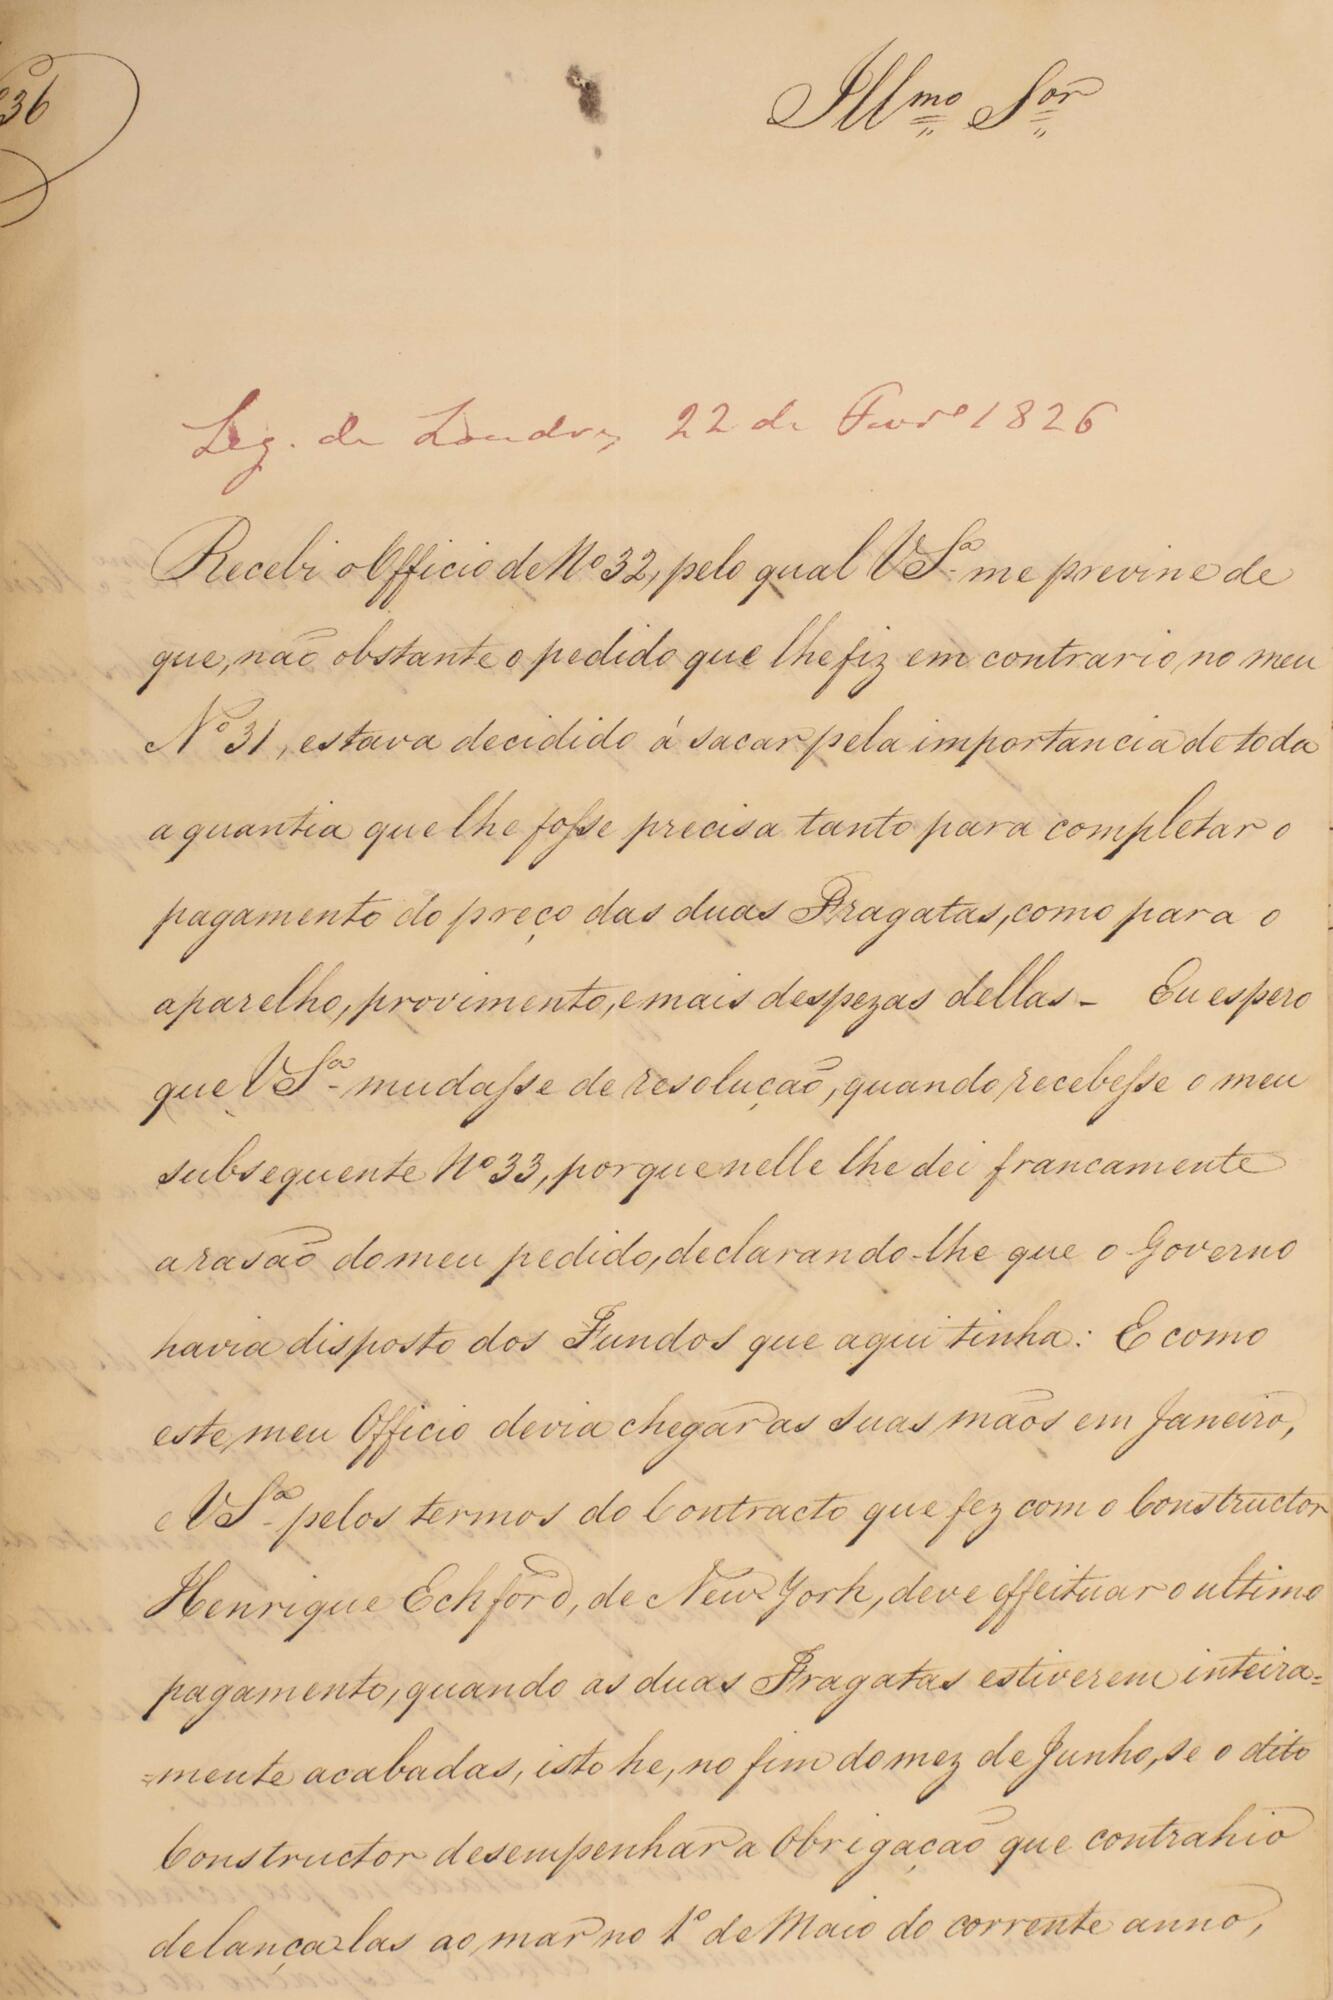 36
Illmo Sor
Leg. de Londres, 22 de Fevro 1826
Recebi o Officio de No 32, pelo qual V Sa me previne de
que, não obstante o pedido que lhe fiz em contrario no meu
No 31, estava decidido á sacar pela importancia de toda
a quantia que lhe fosse precisa tanto para completar o
pagamento do preço das duas Fragatas, como para o
aparelho, provimento, e mais despezas dellas – Eu espero
que V Sa mudasse de resolução, quando recebesse o meu
subsequente No 33, porque nelle lhe dei francamente
a rasão do meu pedido, declarando-lhe que o Governo
havia disposto dos Fundos que aqui tinha: E como
este meu Officio devia chegar as suas mãos em Janeiro,
e V Sa pelos termos do Contracto que fez com o Constructor
Henrique Echford, de New York, deve effeituar o ultimo
pagamento, quando as duas Fragatas estiverem inteira=
=mente acabadas, isto he, no fim do mez de Junho, se o dito
Constructor desempenhar a Obrigação que contrahio
de lança-las ao mar no 1o de Maio do corrente anno,